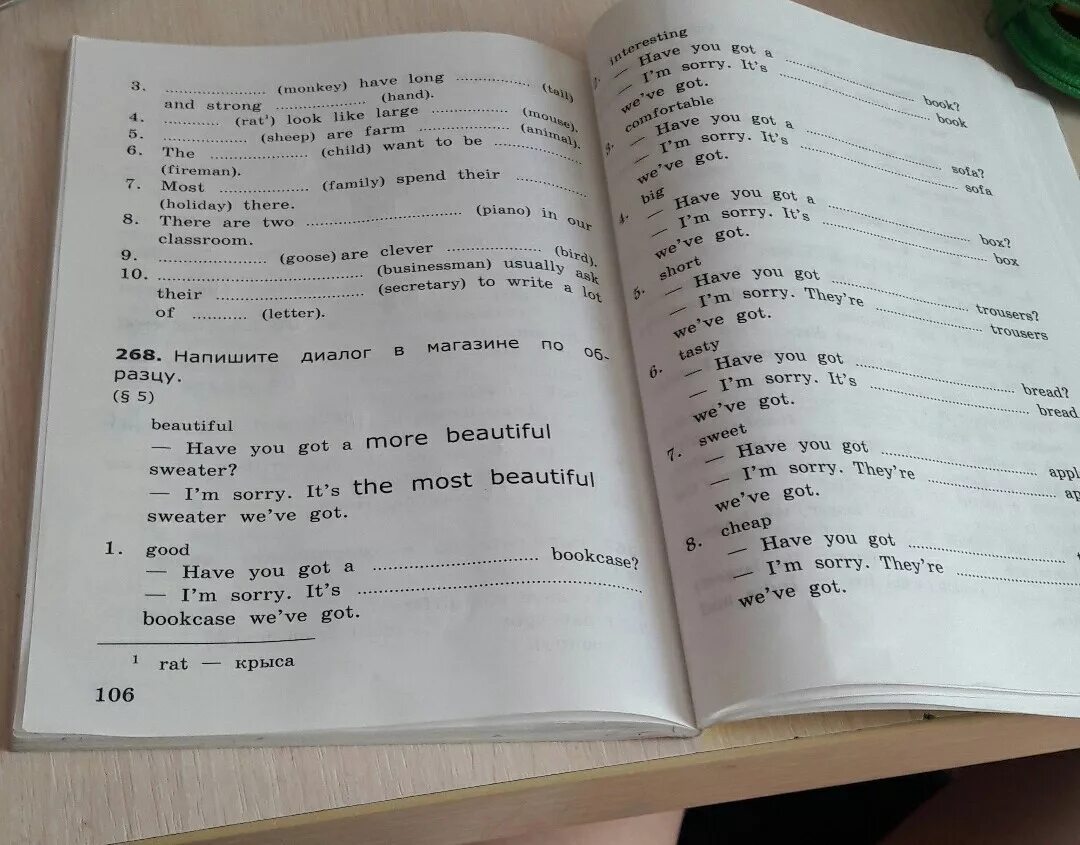 3. .................... (monkey) have long .............. (tail)
and strong .................. (hand).
4. ............ (rat¹) look like large .............. (mouse).
5. ................. (sheep) are farm .................. (animal).
6. The .................... (child) want to be .................
(fireman).
7. Most .................. (family) spend their ..............
(holiday) there.
8. There are two ............................... (piano) in our
classroom.
9. ...................... (goose) are clever ................... (bird).
10. ......................................... (businessman) usually ask
their ............................. (secretary) to write a lot
of ........... (letter).
268. Напишите диалог в магазине по об-
разцу.
(§ 5)
beautiful
— Have you got a more beautiful
sweater?
— I'm sorry. It's the most beautiful
sweater we've got.
1. good
— Have you got a ................................. bookcase?
— I'm sorry. It's .........................................................
bookcase we've got.
¹ rat — крыса
106
interesting
— Have you got a .......................... book?
— I'm sorry. It's ............................... book
we've got.
3. comfortable
— Have you got a .............................. sofa?
— I'm sorry. It's ................................. sofa
we've got.
4. big
— Have you got a ............................ box?
— I'm sorry. It's ................................. box
we've got.
5. short
— Have you got .............................. trousers?
— I'm sorry. They're ......................... trousers
we've got.
6. tasty
— Have you got ................................... bread?
— I'm sorry. It's ................................. bread
we've got.
7. sweet
— Have you got .....................................
— I'm sorry. They're ..........................
we've got.
8. cheap
— Have you got ....................................
— I'm sorry. They're ..............................
we've got.